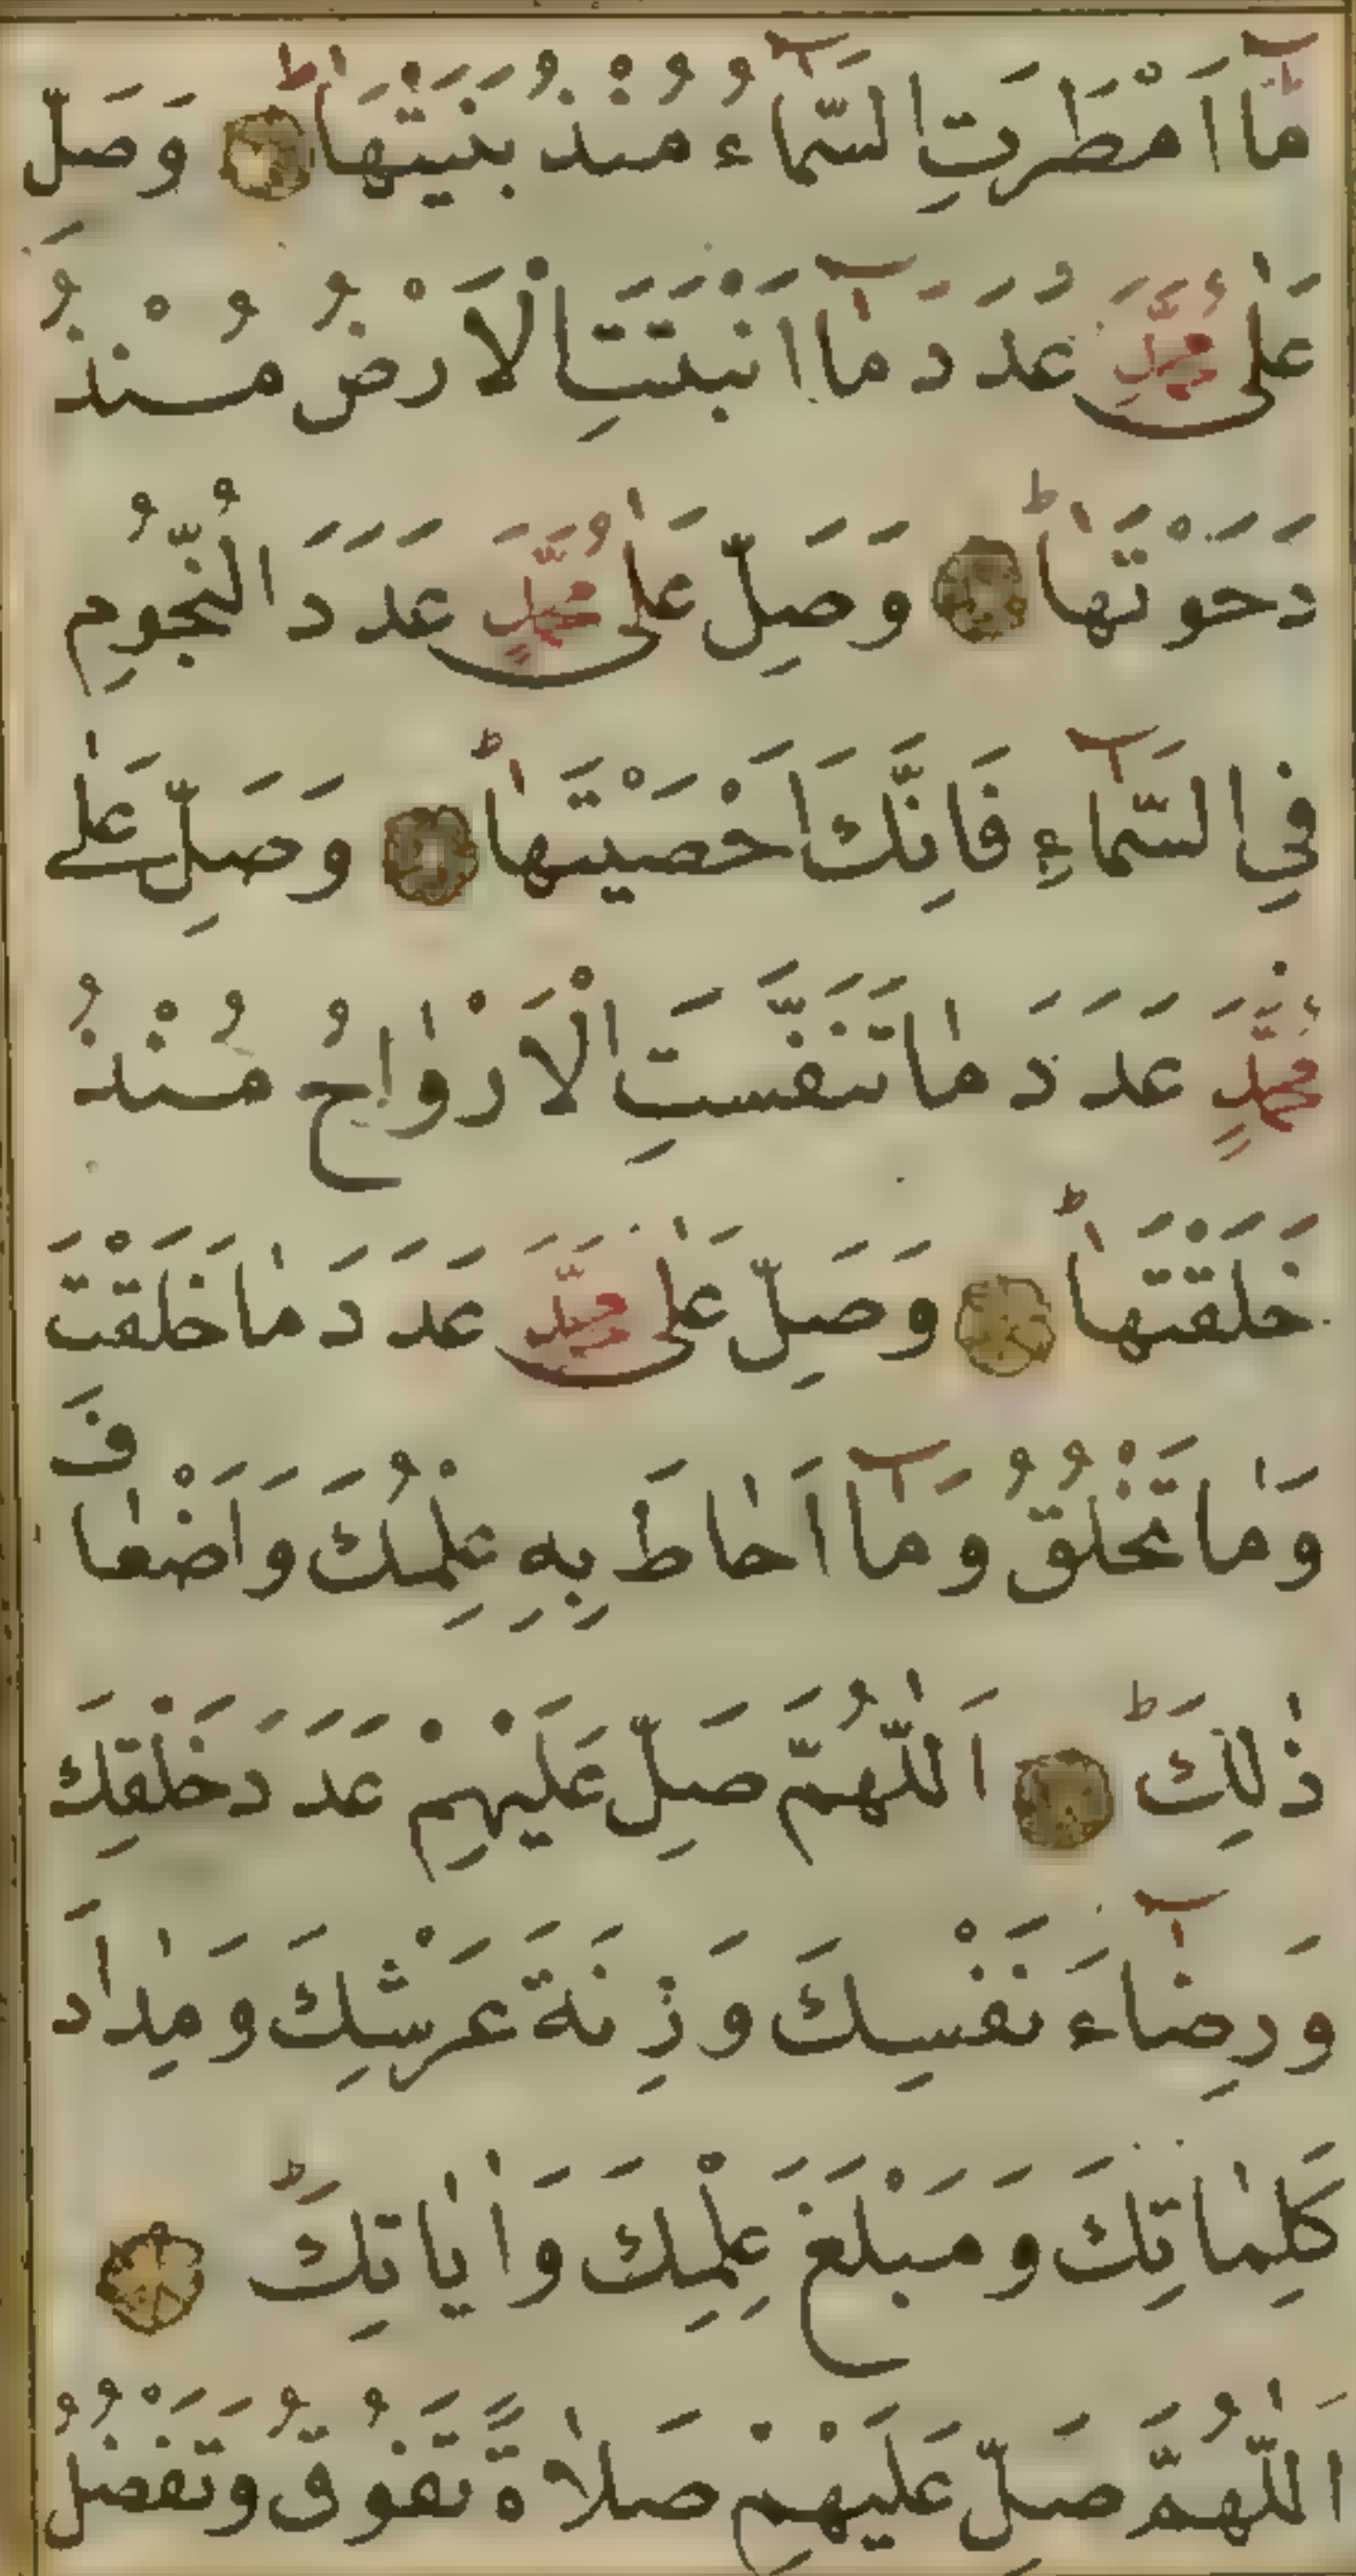 مَٓا اَمْطَرَتِ السَّمَٓاءُ مُنْذُ بَنَيْتَهَا ط وَصَلِّ
عَلٰى مُحَمَّدٍ عَدَدَ مَٓا اَنْبَتَتِ الْاَرْضُ مُنْذُ
دَحَوْتَهَا ط وَصَلِّ عَلٰى مُحَمَّدٍ عَدَدَ النُّجُومِ
فِي السَّمَٓاءِ فَاِنَّكَ اَحْصَيْتَهَا ط وَصَلِّ عَلٰى
مُحَمَّدٍ عَدَدَ مٰا تَنَفَّسَتِ الْاَرْوٰاحُ مُنْذُ
خَلَقْتَهٰا ط وَصَلِّ عَلٰى مُحَمَّدٍ عَدَدَ مٰا خَلَقْتَ
وَمٰا تَخْلُقُ وَمَٓا اَحٰاطَ بِهِ عِلْمُكَ وَاَضْعٰافَ
ذٰلِكَ ط اَللّٰهُمَّ صَلِّ عَلَيْهِمْ عَدَدَ خَلْقِكَ
وَرِضَٓاءَ نَفْسِكَ وَزِنَةَ عَرْشِكَ وَمِدٰادَ
كَلِمٰاتِكَ وَمَبْلَغَ عِلْمِكَ وَاٰيٰاتِكَ ط
اَللّٰهُمَّ صَلِّ عَلَيْهِمْ صَلٰاةً تَفُوقُ وَتَفْضُلُ